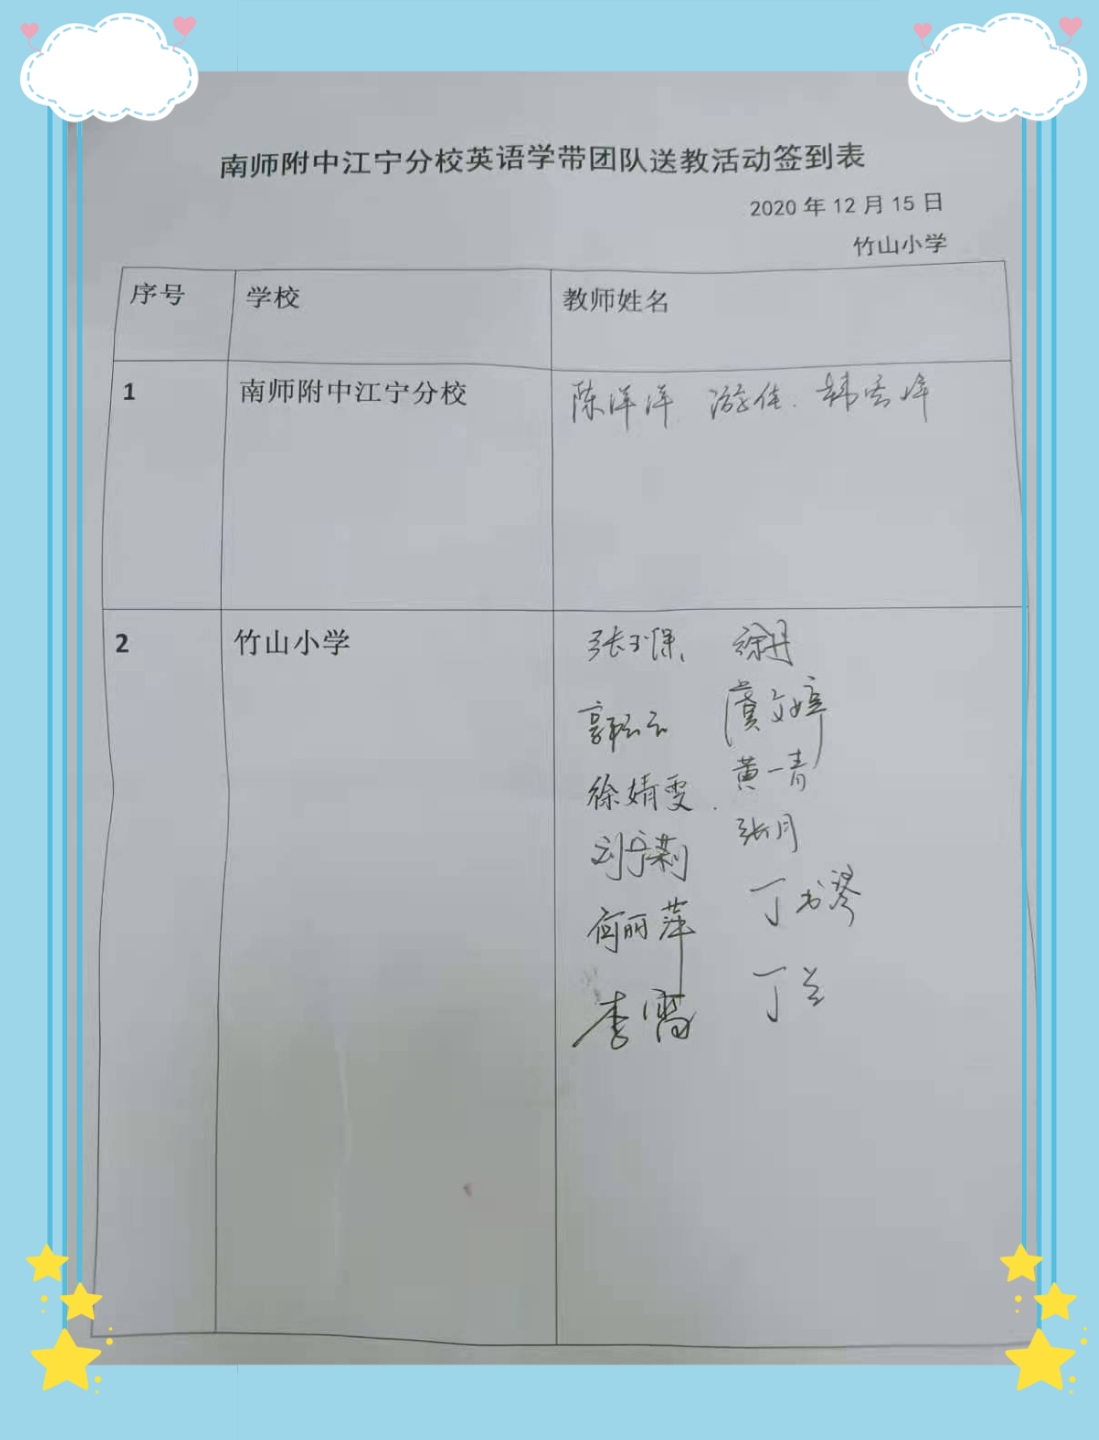 南师附中江宁分校英语学带团队送教活动签到表
2020 年 12 月 15 日
竹山小学
序号 学校 教师姓名
1 南师附中江宁分校 陈洋洋 游佳
2 竹山小学 徐丹
虞文婷
徐婧雯 黄一青
张月
何丽萍 丁书琴
丁兰